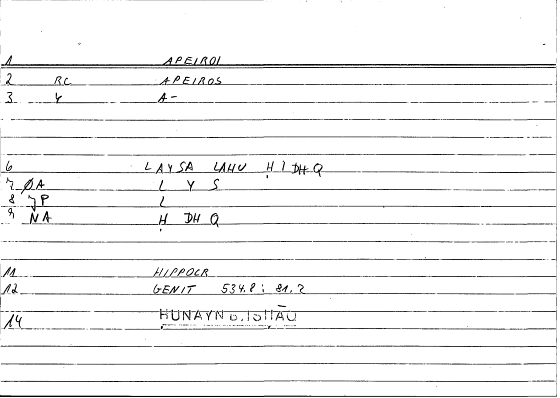 1 APEIROI
2 RC APEIROS
3 Y A-
6 LAYSA LAHU ḤIDHQ
7 ØA L Y S
8 JP L
9 NA Ḥ DH Q
11 HIPPOCR
12 GENIT 534.8; 81.2
14 HUNAYN B. ISḤĀQ